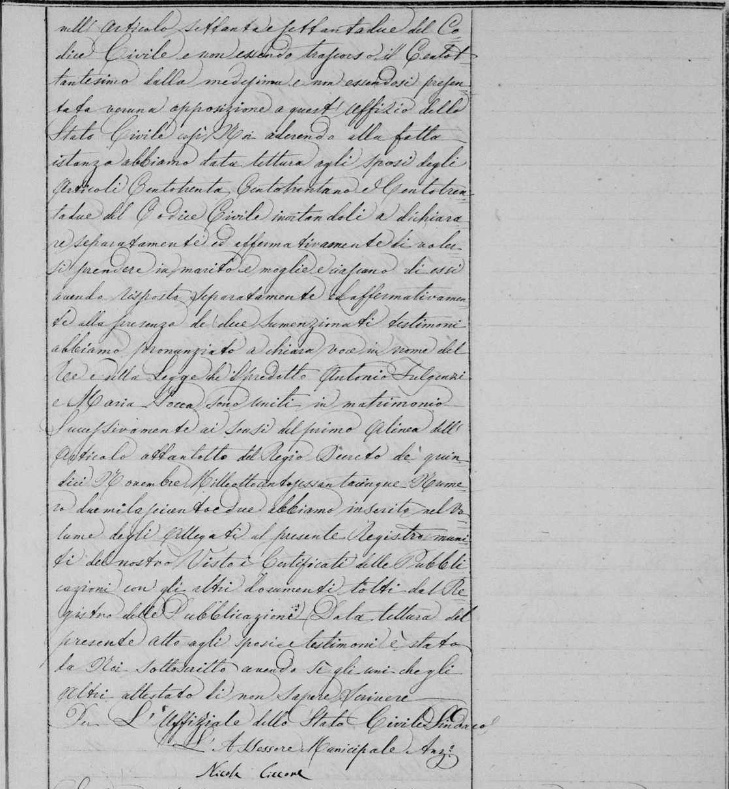 nell' Articolo settanta e settantadue del Co-
dice Civile e non essendo trascorso il Centot-
tantesimo dalla medesima e non essendosi presen-
tata veruna opposizione a quest' Uffizio dello
Stato Civile così Noi aderendo alla fatta
istanza abbiamo data lettura agli sposi degli
Articoli Centotrenta, Centotrentuno e Centotren-
tadue del Codice Civile invitandoli a dichiara
re separatamente ed affermativamente di voler-
si prendere in marito e moglie e ciascuno di essi
avendo risposto separatamente ed affermativamen-
te alla presenza de' due sumenzionati testimoni
abbiamo pronunziato a chiara voce in nome del
Re e della Legge che il predetto Antonio
e Maria sono uniti in matrimonio
Successivamente ai sensi del primo Alinea dell'
Articolo ottantotto del Regio Decreto de' quin-
dici Novembre Milleottocentosessantacinque Nume-
ro duemilaseicentodue abbiamo inserito nel Vo-
lume degli Allegati al presente Registro muni
ti del nostro Visto i Certificati delle Pubbli
cazioni con gli altri documenti tolti dal Re-
gistro delle Pubblicazioni. Data lettura del
presente atto agli sposi e testimoni è stato
da Noi sottoscritto avendo sì gli uni che gli
Altri attestato di non sapere scrivere
L' Uffiziale dello Stato Civile Sindaco
L' Assessore Municipale Anz.º
Nicola Ciccone